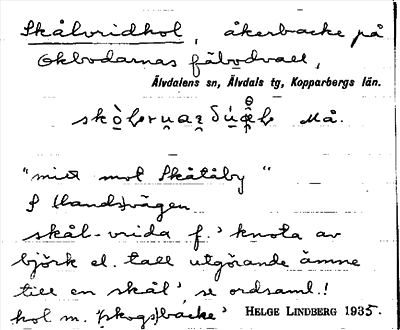 Skålvridhol, åkerbacke på
Okbodarnas fäbodvall,
Älvdalens sn, Älvdals tg, Kopparbergs län.
Må.
"mitt mot Skåtåby"
f. (landsvägen
skål-vrida f. 'knota av
björk el. tall utgörande ämne
till en skål', se ordsaml.!
hol m. (skogs)backe'
HELGE LINDBERG 1935.